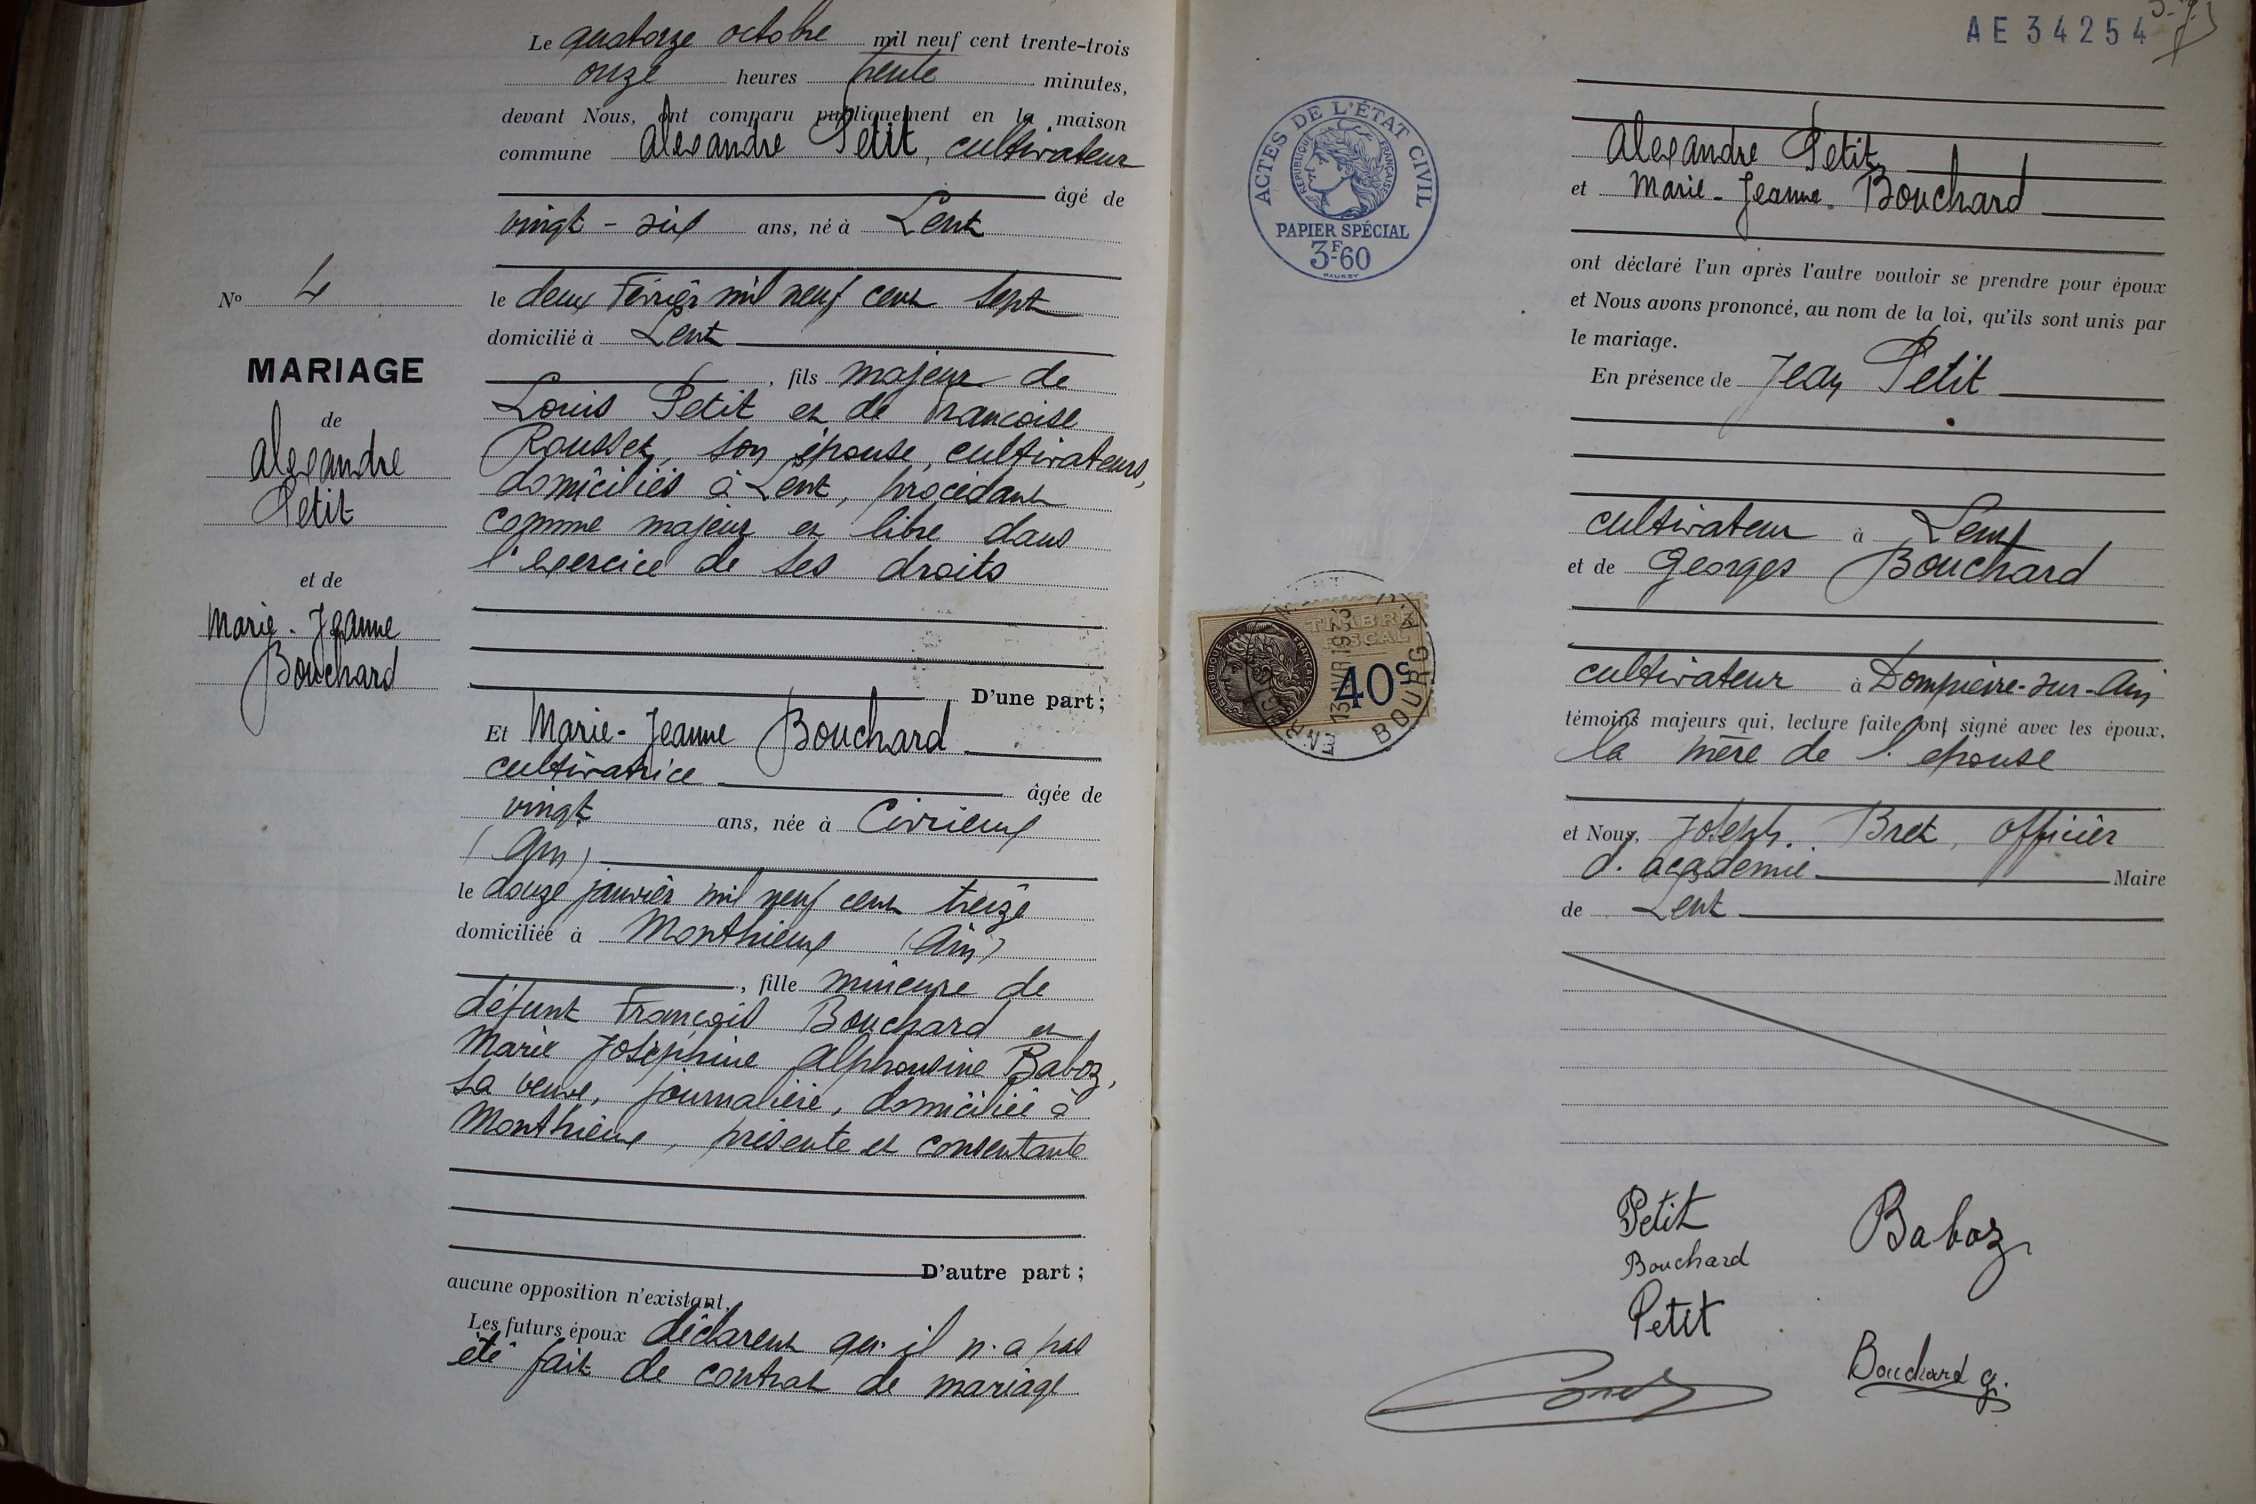 Le quatorze octobre mil neuf cent trente-trois
onze heures trente minutes,
devant Nous, ont comparu publiquement en la maison
commune Alexandre Petit, cultivateur
âgé de
vingt-six ans, né à Lent
le deux Février mil neuf cent sept
domicilié à Lent
, fils majeur de
Louis Petit et de Françoise
Rousset, son épouse, cultivateurs,
domiciliés à Lent, procédant
comme majeur et libre dans
l'exercice de ses droits
D'une part;
Et Marie-Jeanne Bouchard
cultivatrice
âgée de
vingt ans, née à Civrieux
(Ain)
le douze janvier mil neuf cent treize
domiciliée à Monthieux (Ain)
, fille mineure de
défunt François Bouchard et
Marie Joséphine Alphonsine Baboz,
sa veuve, journalière, domiciliée à
Monthieux, présente et consentante
D'autre part;
aucune opposition n'existant,
Les futurs époux déclarent qu'il n'a pas
été fait de contrat de mariage
No 4
MARIAGE
de
Alexandre
Petit
et de
Marie-Jeanne
Bouchard
AE 34254
ACTES DE L'ÉTAT CIVIL
RÉPUBLIQUE FRANÇAISE
PAPIER SPÉCIAL
3F-60
TIMBRE
FISCAL
RÉPUBLIQUE FRANÇAISE
40c
13 AVR 1933
BOURG
Alexandre Petit
et Marie-Jeanne Bouchard
ont déclaré l'un après l'autre vouloir se prendre pour époux
et Nous avons prononcé, au nom de la loi, qu'ils sont unis par
le mariage.
En présence de Jean Petit
cultivateur à Lent
et de Georges Bouchard
cultivateur à Dompierre-sur-Ain
témoins majeurs qui, lecture faite ont signé avec les époux,
la mère de l'épouse
et Nous, Joseph Bret, officier
d'académie Maire
de Lent
Petit
Baboz
Bouchard
Petit
Bouchard g.